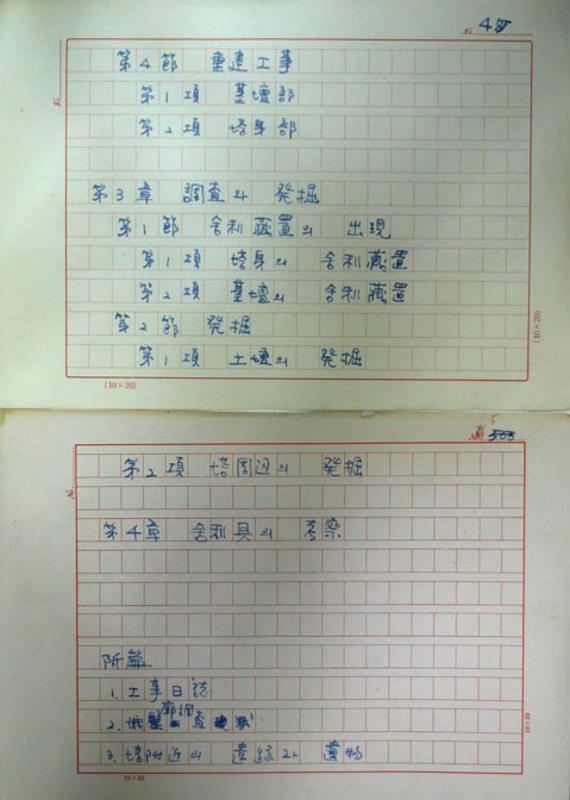 4
第4節 重建工事
第1項 基壇部
第2項 塔身部
第3章 調査와 発掘
第1節 舍利藏置의 出現
第1項 塔身의 舍利藏置
第2項 基壇의 舍利藏置
第2節 発掘
第1項 土壇의 発掘
(10×20)
(10×20)
5
第2項 塔周辺의 発掘
第4章 舍利具의 考察
附篇
1. 工事日誌
2. 調査
3. 塔附近의 遺跡과 遺物
10×20
10×20